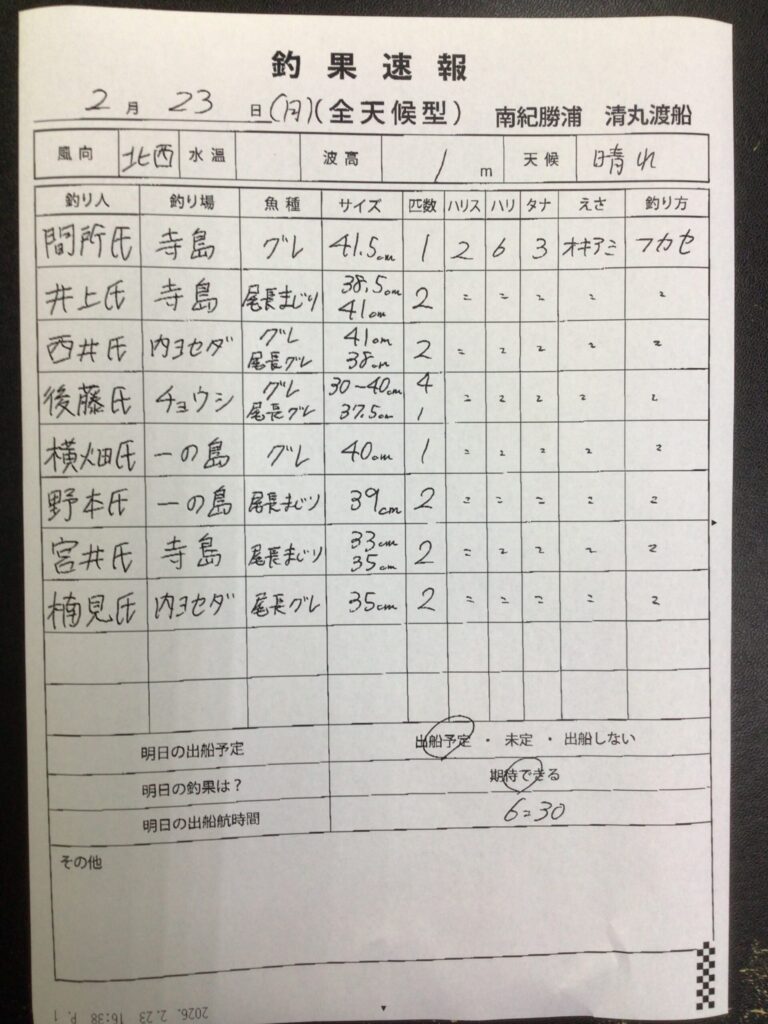 釣果速報
2月23日(月)(全天候型) 南紀勝浦 清丸渡船
風向 北西 水温 波高 1 m 天候 晴れ
釣り人 釣り場 魚種 サイズ 匹数 ハリス ハリ タナ えさ 釣り方
間所氏 寺島 グレ 41.5cm 1 2 6 3 オキアミ フカセ
井上氏 寺島 尾長まじり 38.5cm 41cm 2 〃 〃 〃 〃 〃
西井氏 内ヨセダ グレ 41cm 尾長グレ 38cm 2 〃 〃 〃 〃 〃
後藤氏 チョウシ グレ 30〜40cm 4 尾長グレ 37.5cm 1 〃 〃 〃 〃 〃
横畑氏 一の島 グレ 40cm 1 〃 〃 〃 〃 〃
野本氏 一の島 尾長まじり 39cm 2 〃 〃 〃 〃 〃
宮井氏 寺島 尾長まじり 33cm 35cm 2 〃 〃 〃 〃 〃
楠見氏 内ヨセダ 尾長グレ 35cm 2 〃 〃 〃 〃 〃
明日の出船予定 出船予定 ・ 未定 ・ 出船しない
明日の釣果は? 期待できる
明日の出船航時間 6:30
その他
2026. 2.23 16:38 P. 1